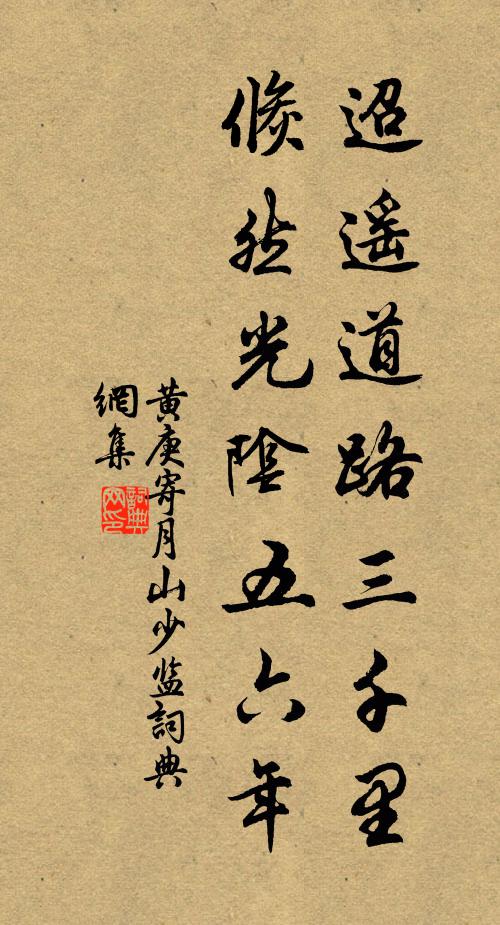 迢遥道路三千里
倏然光陰五六年
黄庚寄月山少监詞典
網集
詞典
网印